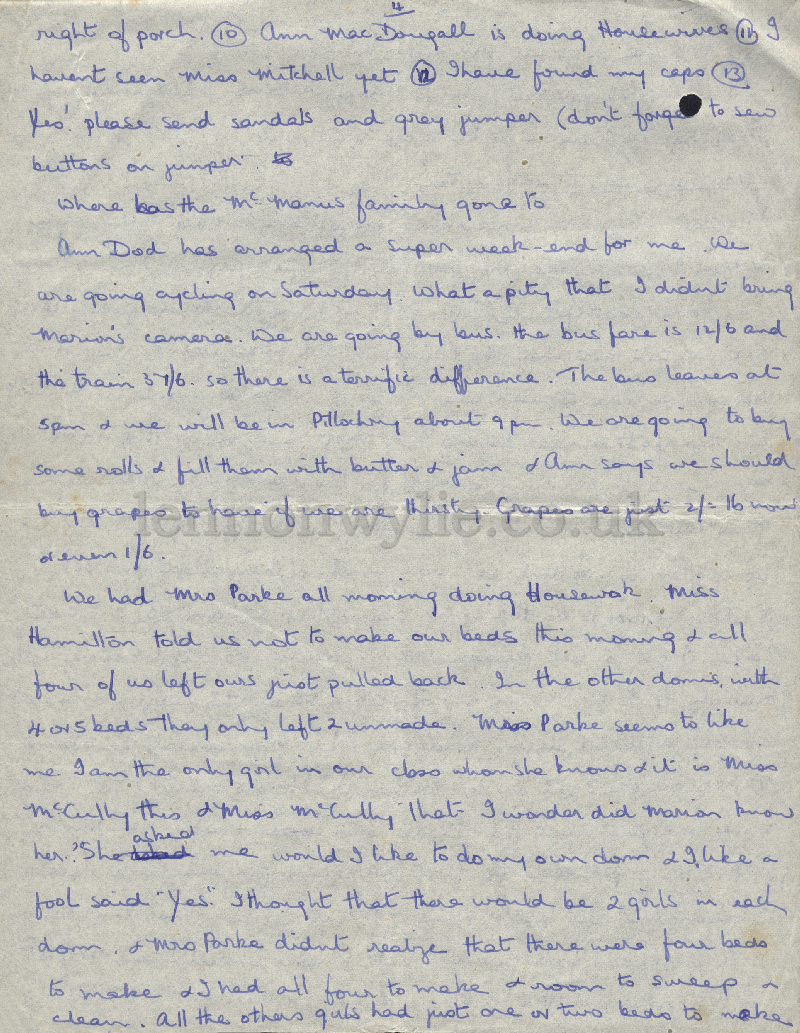 4
right of porch. (10) Ann MacDougall is doing Housewives (11) I
havent seen Miss Mitchell yet (12) I have found my caps (13)
Yes! please send sandals and grey jumper (don't forget to sew
buttons on jumper.
Where has the McManus family gone to
Ann Dod has arranged a super week-end for me. We
are going cycling on Saturday. What a pity that I didn't bring
Marion's cameras. We are going by bus. the bus fare is 12/6 and
the train 37/6. so there is a terrific difference. The bus leaves at
5pm & we will be in Pitlochry about 9 pm. We are going to buy
some rolls & fill them with butter & jam & Ann says we should
buy grapes to have if we are thirsty. Grapes are just 2/- lb now
or even 1/6.
lennonwylie.co.uk
We had Mrs Parke all morning doing Housewok. Miss
Hamilton told us not to make our beds this morning & all
four of us left ours just pulled back. In the other dorms, with
4 or 5 beds they only left 2 unmade. Mrs Parke seems to like
me I am the only girl in our class whom she knows & it is Miss
McCully this & Miss McCully that I wonder did Marion know
her. She asked me would I like to do my own dorm & I, like a
fool said "Yes". I thought that there would be 2 girls in each
dorm. & Mrs Parke didnt realize that there were four beds
to make & I had all four to make & room to sweep &
clean. All the others girls had just one or two beds to make